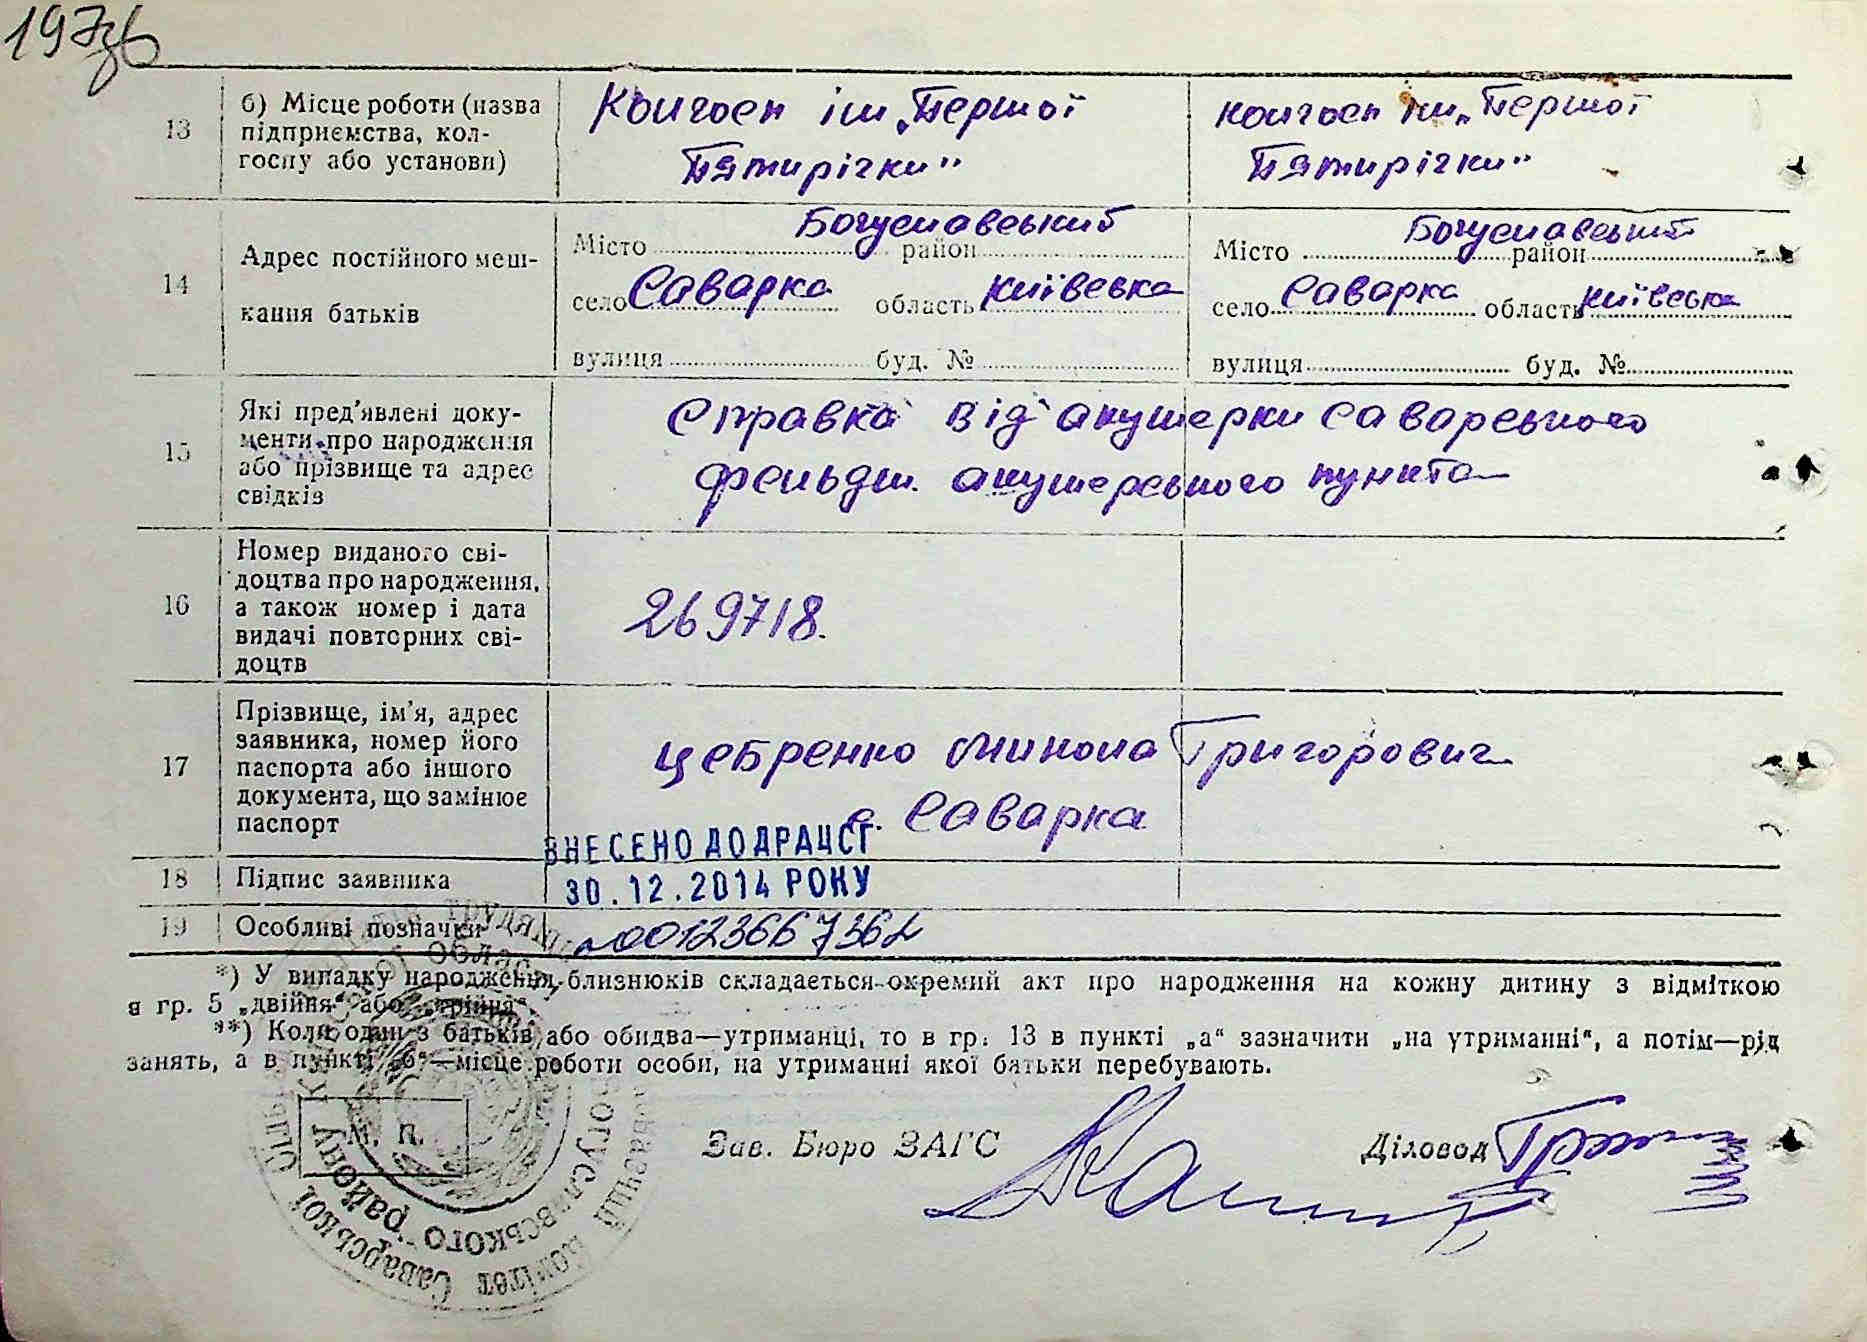 197зв
13
б) Місце роботи (назва
підприємства, кол-
госпу або установи)
Колгосп ім. „Першої
Пятирічки"
колгосп ім. „Першої
Пятирічки"
14
Адрес постійного меш-
кання батьків
Богуславський
Місто район
село Саварка область Київська
вулиця буд. №
Богуславський
Місто район
село Саварка область Київська
вулиця буд. №
15
Які пред'явлені доку-
менти про народження
або прізвище та адрес
свідків
Справка від акушерки Саварського
фельдш. акушерського пункта
16
Номер виданого сві-
доцтва про народження,
а також номер і дата
видачі повторних сві-
доцтв
269718.
17
Прізвище, ім'я, адрес
заявника, номер його
паспорта або іншого
документа, що замінює
паспорт
Цебренко Микола Григорович
с. Саварка
ВНЕСЕНО ДО ДРАЦСГ
18
Підпис заявника
30.12.2014 РОКУ
19
Особливі позначки
00123667362
*) У випадку народження близнюків складається окремий акт про народження на кожну дитину з відміткою
в гр. 5 „двійня" або „трійня".
**) Коли один з батьків або обидва—утриманці, то в гр. 13 в пункті „а" зазначити „на утриманні", а потім—рід
занять, а в пункті „б"—місце роботи особи, на утриманні якої батьки перебувають.
М. П.
Зав. Бюро ЗАГС
Діловод
виконавчий комітет Саварської
Богуславського району